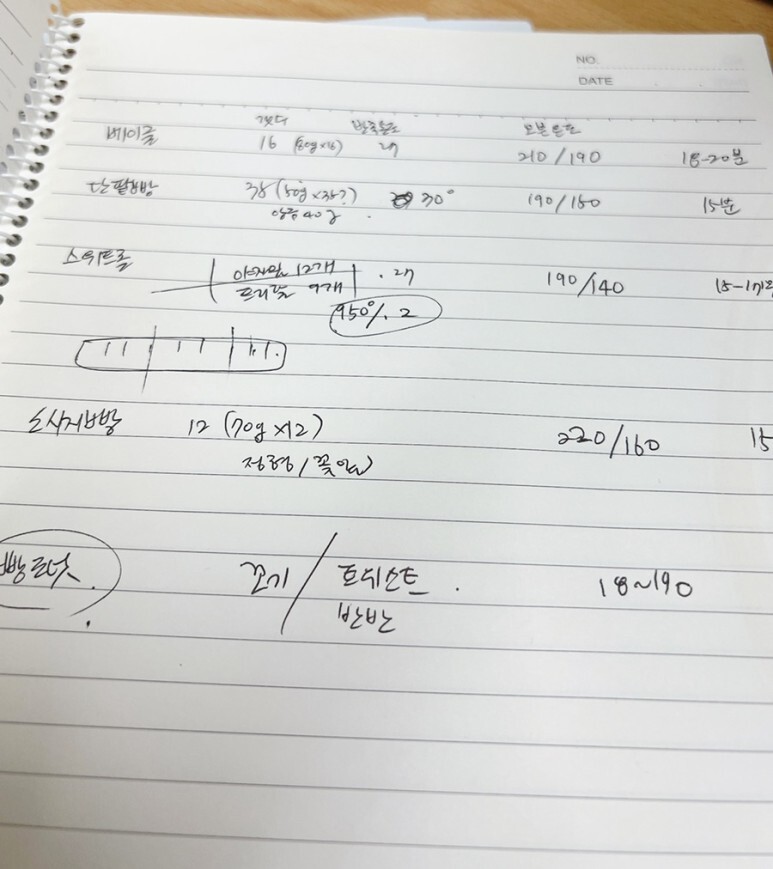 NO.
DATE
갯수 발효온도 오븐온도
베이글 16 (80g×16) 27 210/190 18-20분
단팥빵 38 (50g×38?) 30° 190/150 15분
앙금 40g
스위트롤 야자잎 12개 . 27 190/140 15-17분
트리플 9개
950%. 2
소시지빵 12 (70g×12) 220/160 15
정형/꽃잎
빵도넛 꼬기/트위스트 . 18~190
반반